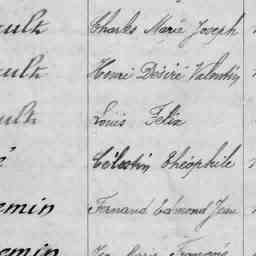 ault Charles Marie Joseph
ault Henri Désiré Valentin
ault Louis Felix
é Célestin Théophile
emin Fernand Edmond Jean
emin Marie François